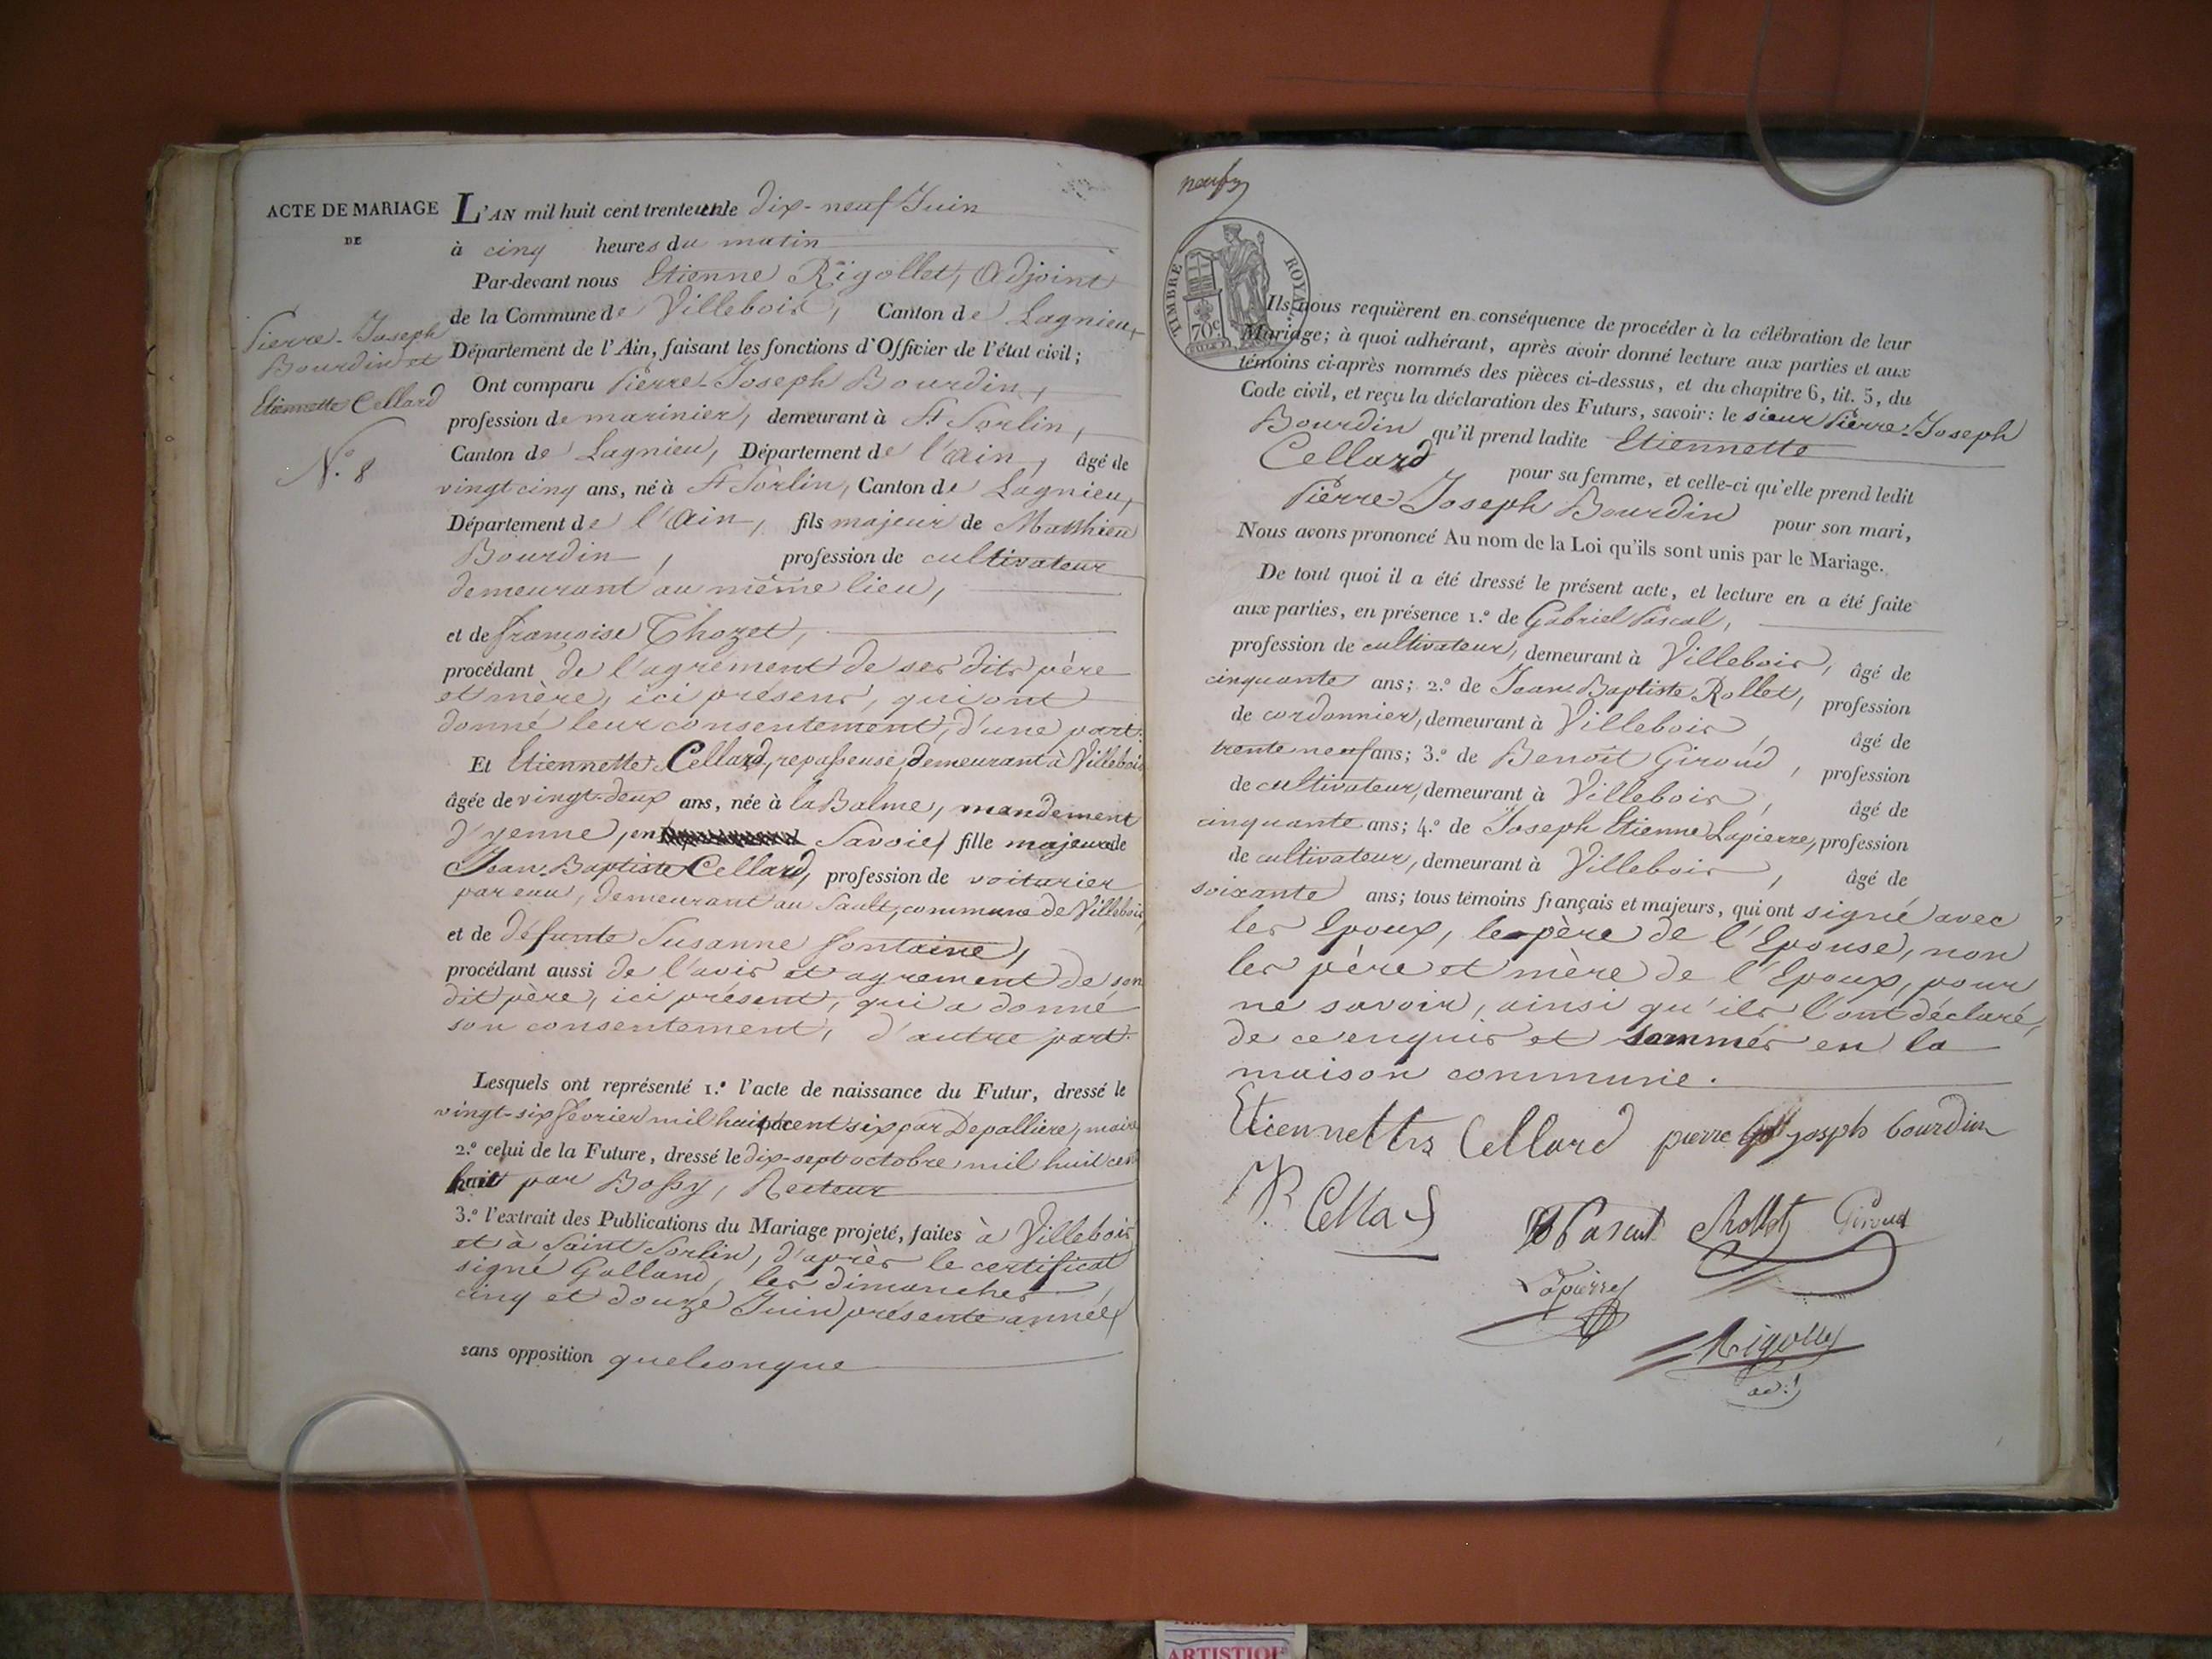 ACTE DE MARIAGE
DE
Pierre-Joseph
Bourdin et
Etiennette Cellard
N.º 8
L'AN mil huit cent trente un le dix-neuf Juin
à cinq heures du matin
Par-devant nous Etienne Rigollet, Adjoint
de la Commune de Villebois, Canton de Lagnieu,
Département de l'Ain, faisant les fonctions d'Officier de l'état civil;
Ont comparu Pierre-Joseph Bourdin,
profession de marinier, demeurant à St Sorlin,
Canton de Lagnieu, Département de l'Ain, âgé de
vingt cinq ans, né à St Sorlin, Canton de Lagnieu,
Département de l'Ain, fils majeur de Matthieu
Bourdin, profession de cultivateur
demeurant au même lieu,
et de françoise Thozet,
procédant de l'agrément de ses dits père
et mère, ici présens, qui ont
donné leur consentement, d'une part.
Et Etiennette Cellard, repasseuse, demeurant à Villebois
âgée de vingt-deux ans, née à la Balme, mandement
d'yenne, en Savoie, fille majeure de
Jean-Baptiste Cellard, profession de voiturier
par eau, demeurant au Sault, commune de Villebois,
et de défunte Susanne fontaine,
procédant aussi de l'avis et agrément de son
dit père, ici présent, qui a donné
son consentement, d'autre part.
Lesquels ont représenté 1.º l'acte de naissance du Futur, dressé le
vingt-six février mil huit cent six par Depalliere, maire
2.º celui de la Future, dressé le dix-sept octobre mil huit cent
huit par Bossy, Recteur
3.º l'extrait des Publications du Mariage projeté, faites à Villebois
et à Saint Sorlin, d'après le certificat
signé Galland, les dimanches
cinq et douze Juin présente année
sans opposition quelconque
TIMBRE ROYAL
70c
Ils nous requièrent en conséquence de procéder à la célébration de leur
Mariage; à quoi adhérant, après avoir donné lecture aux parties et aux
témoins ci-après nommés des pièces ci-dessus, et du chapitre 6, tit. 5, du
Code civil, et reçu la déclaration des Futurs, savoir: le sieur Pierre-Joseph
Bourdin qu'il prend ladite Etiennette
Cellard pour sa femme, et celle-ci qu'elle prend ledit
Pierre-Joseph Bourdin pour son mari,
Nous avons prononcé Au nom de la Loi qu'ils sont unis par le Mariage.
De tout quoi il a été dressé le présent acte, et lecture en a été faite
aux parties, en présence 1.º de Gabriel Pascal,
profession de cultivateur, demeurant à Villebois, âgé de
cinquante ans; 2.º de Jean-Baptiste Rollet, profession
de cordonnier, demeurant à Villebois, âgé de
trente neuf ans; 3.º de Benoît Giroud, profession
de cultivateur, demeurant à Villebois, âgé de
cinquante ans; 4.º de Joseph Etienne Lapierre, profession
de cultivateur, demeurant à Villebois, âgé de
soixante ans; tous témoins français et majeurs, qui ont signé avec
les Epoux, le père de l'Epouse, non
les père et mère de l'Epoux, pour
ne savoir, ainsi qu'ils l'ont déclaré,
de ce enquis et sommés en la
maison commune.
Etiennette Cellard pierre joseph bourdin
Cellard Pascal Rollet Giroud
Lapierre
Rigollet
adj.t
ARTISTIQUE